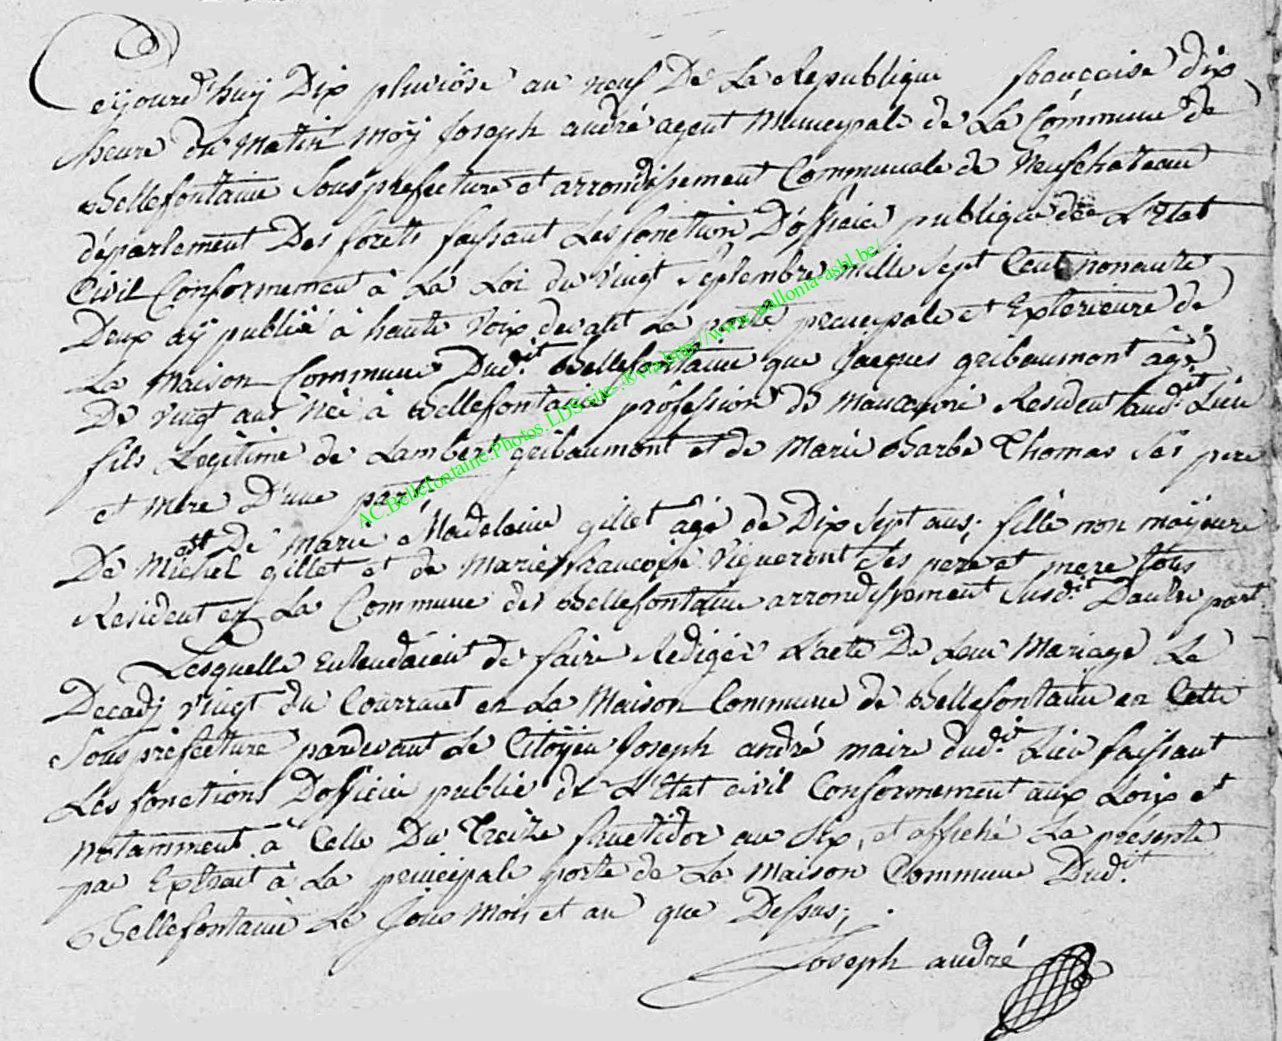 Cejourd'huij Dix pluviôse an neuf De La Republique francaise dix
heure du Matin Moÿ Joseph andré agent Municipale de La Commune de
Bellefontaine Sous prefecture et arrondissement Communale de Neufchateau
département Des forets faisant Les fonction D'officié publique dee L'Etat
Civil Conformement à La Loi du Vingt Septembre mille Sept Cent nonante
Deux aÿ publié à haute Voix devant La porte principale et Exterieure de
La Maison Commune Dud.it Bellefontaine que Jacques gribaumont agé
De Vingt ans Né à Bellefontaine profession de Resident aud.it Lieu
fils Legitime de Lambert gribaumont et de Marie Barbe Thomas Ses pere
et Mere D'une part
et De Marie Madeleine gillet agé de Dix Sept ans; fille non majeure
De Michel gillet et de Marie francoise Vigneront Ses pere et mere tous
Resident en La Commune de Bellefontaine arrondissement Susd.it Dautre part.
Lesquelle Entendoient de faire Rediger L'acte De Leur Mariage Le
Decadj vingt du Courrant en La Maison Commune de Bellefontaine en Cette
Sous prefecture pardevant Le Citoÿen Joseph andré maire dud.it Lieu faisant
Les fonctions Dofficié public de L'Etat civil Conformement aux Loix et
notamment à Celle Du Treize fructidor an Six, et affiché La présente
par Extrait à La principale porte de La Maison Commune Dud.it
Bellefontaine Le Jour Mois et an que Dessus;
Joseph andré
AC.Bellefontaine.Photos.LDS http://www.wallonia-asbl.be/